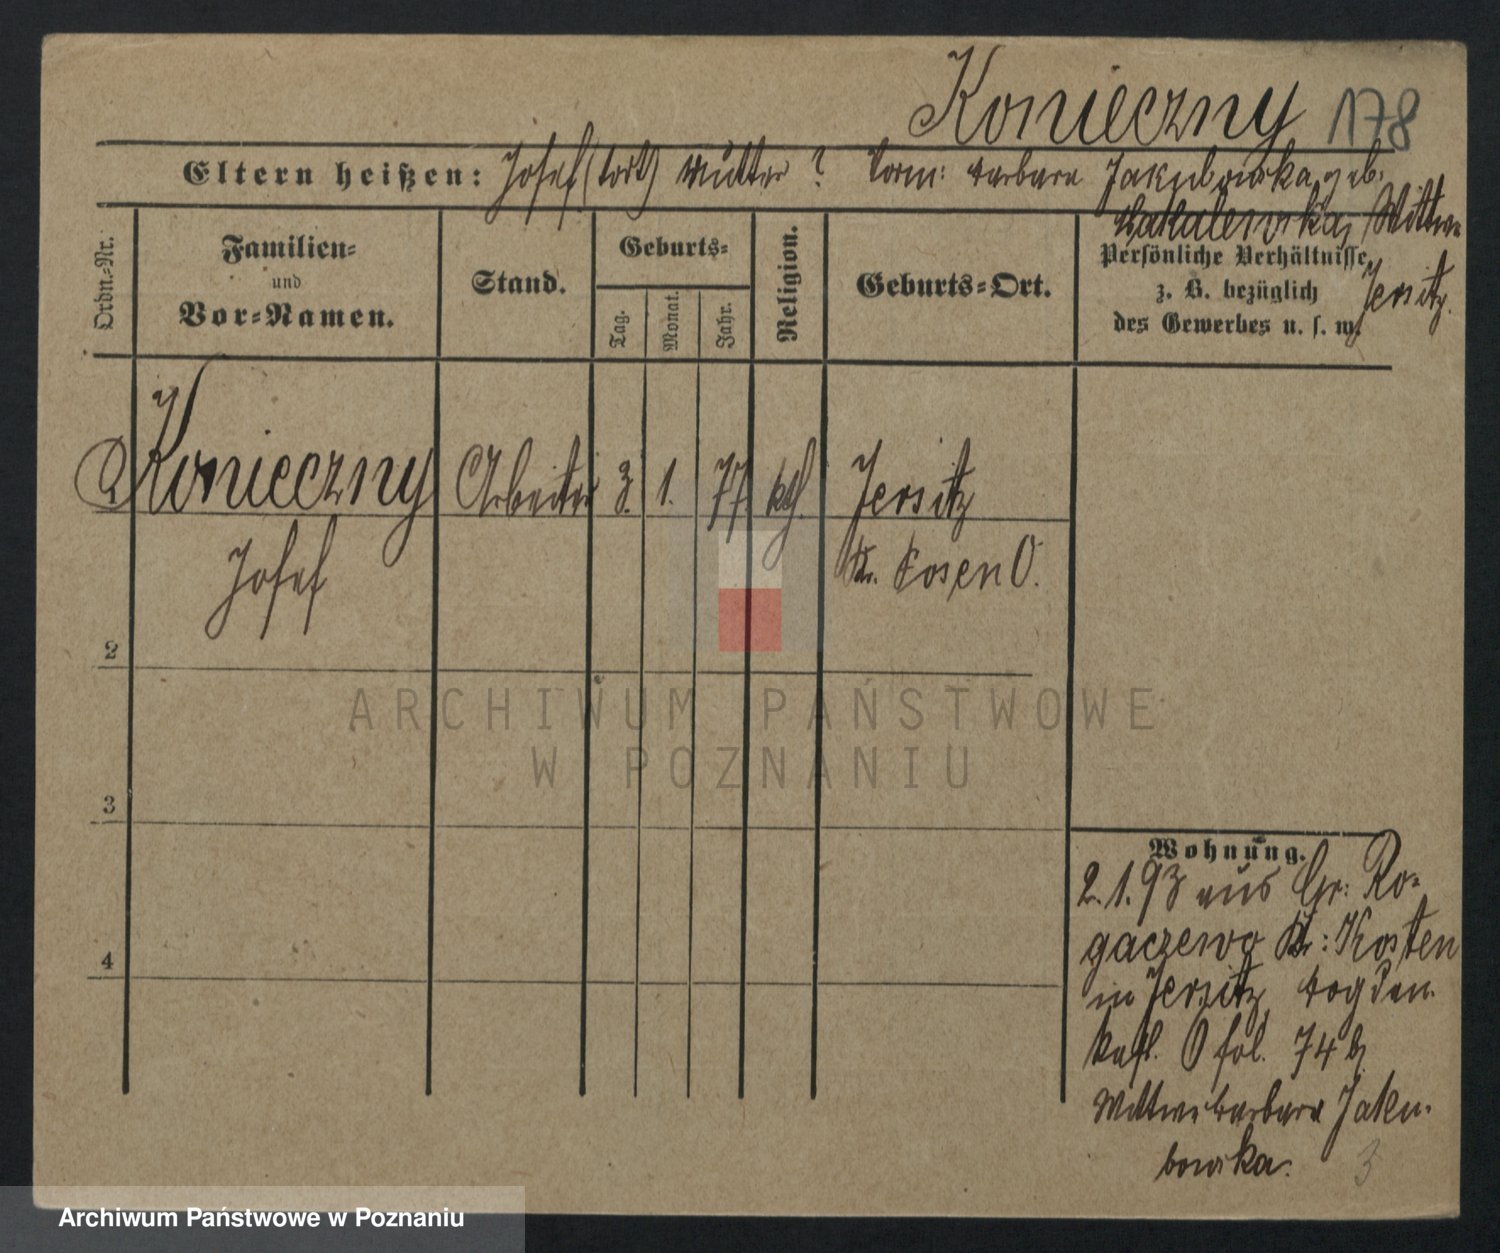 Konieczny 178
Eltern heißen: Josef (todt) Mutter ? Vorm: Barbara Jakubowska, geb.
Wittwe
Jersitz.
Ordn.-Nr.
Familien-
und
Vor-Namen.
Stand.
Geburts-
Tag.
Monat.
Jahr.
Religion.
Geburts-Ort.
Persönliche Verhältnisse
z. B. bezüglich
des Gewerbes u. s. w.
Konieczny Arbeiter 3. 1. 77. kth. Jersitz
Josef Kr. Posen O.
2
3
4
Wohnung.
2.1.93 aus Gr: Ro-
gaczewo Kr: Kosten
in Jersitz,
O fol. 74 b,
Wittwe Barbara Jaku-
bowska.
3
ARCHIWUM PAŃSTWOWE
W POZNANIU
Archiwum Państwowe w Poznaniu